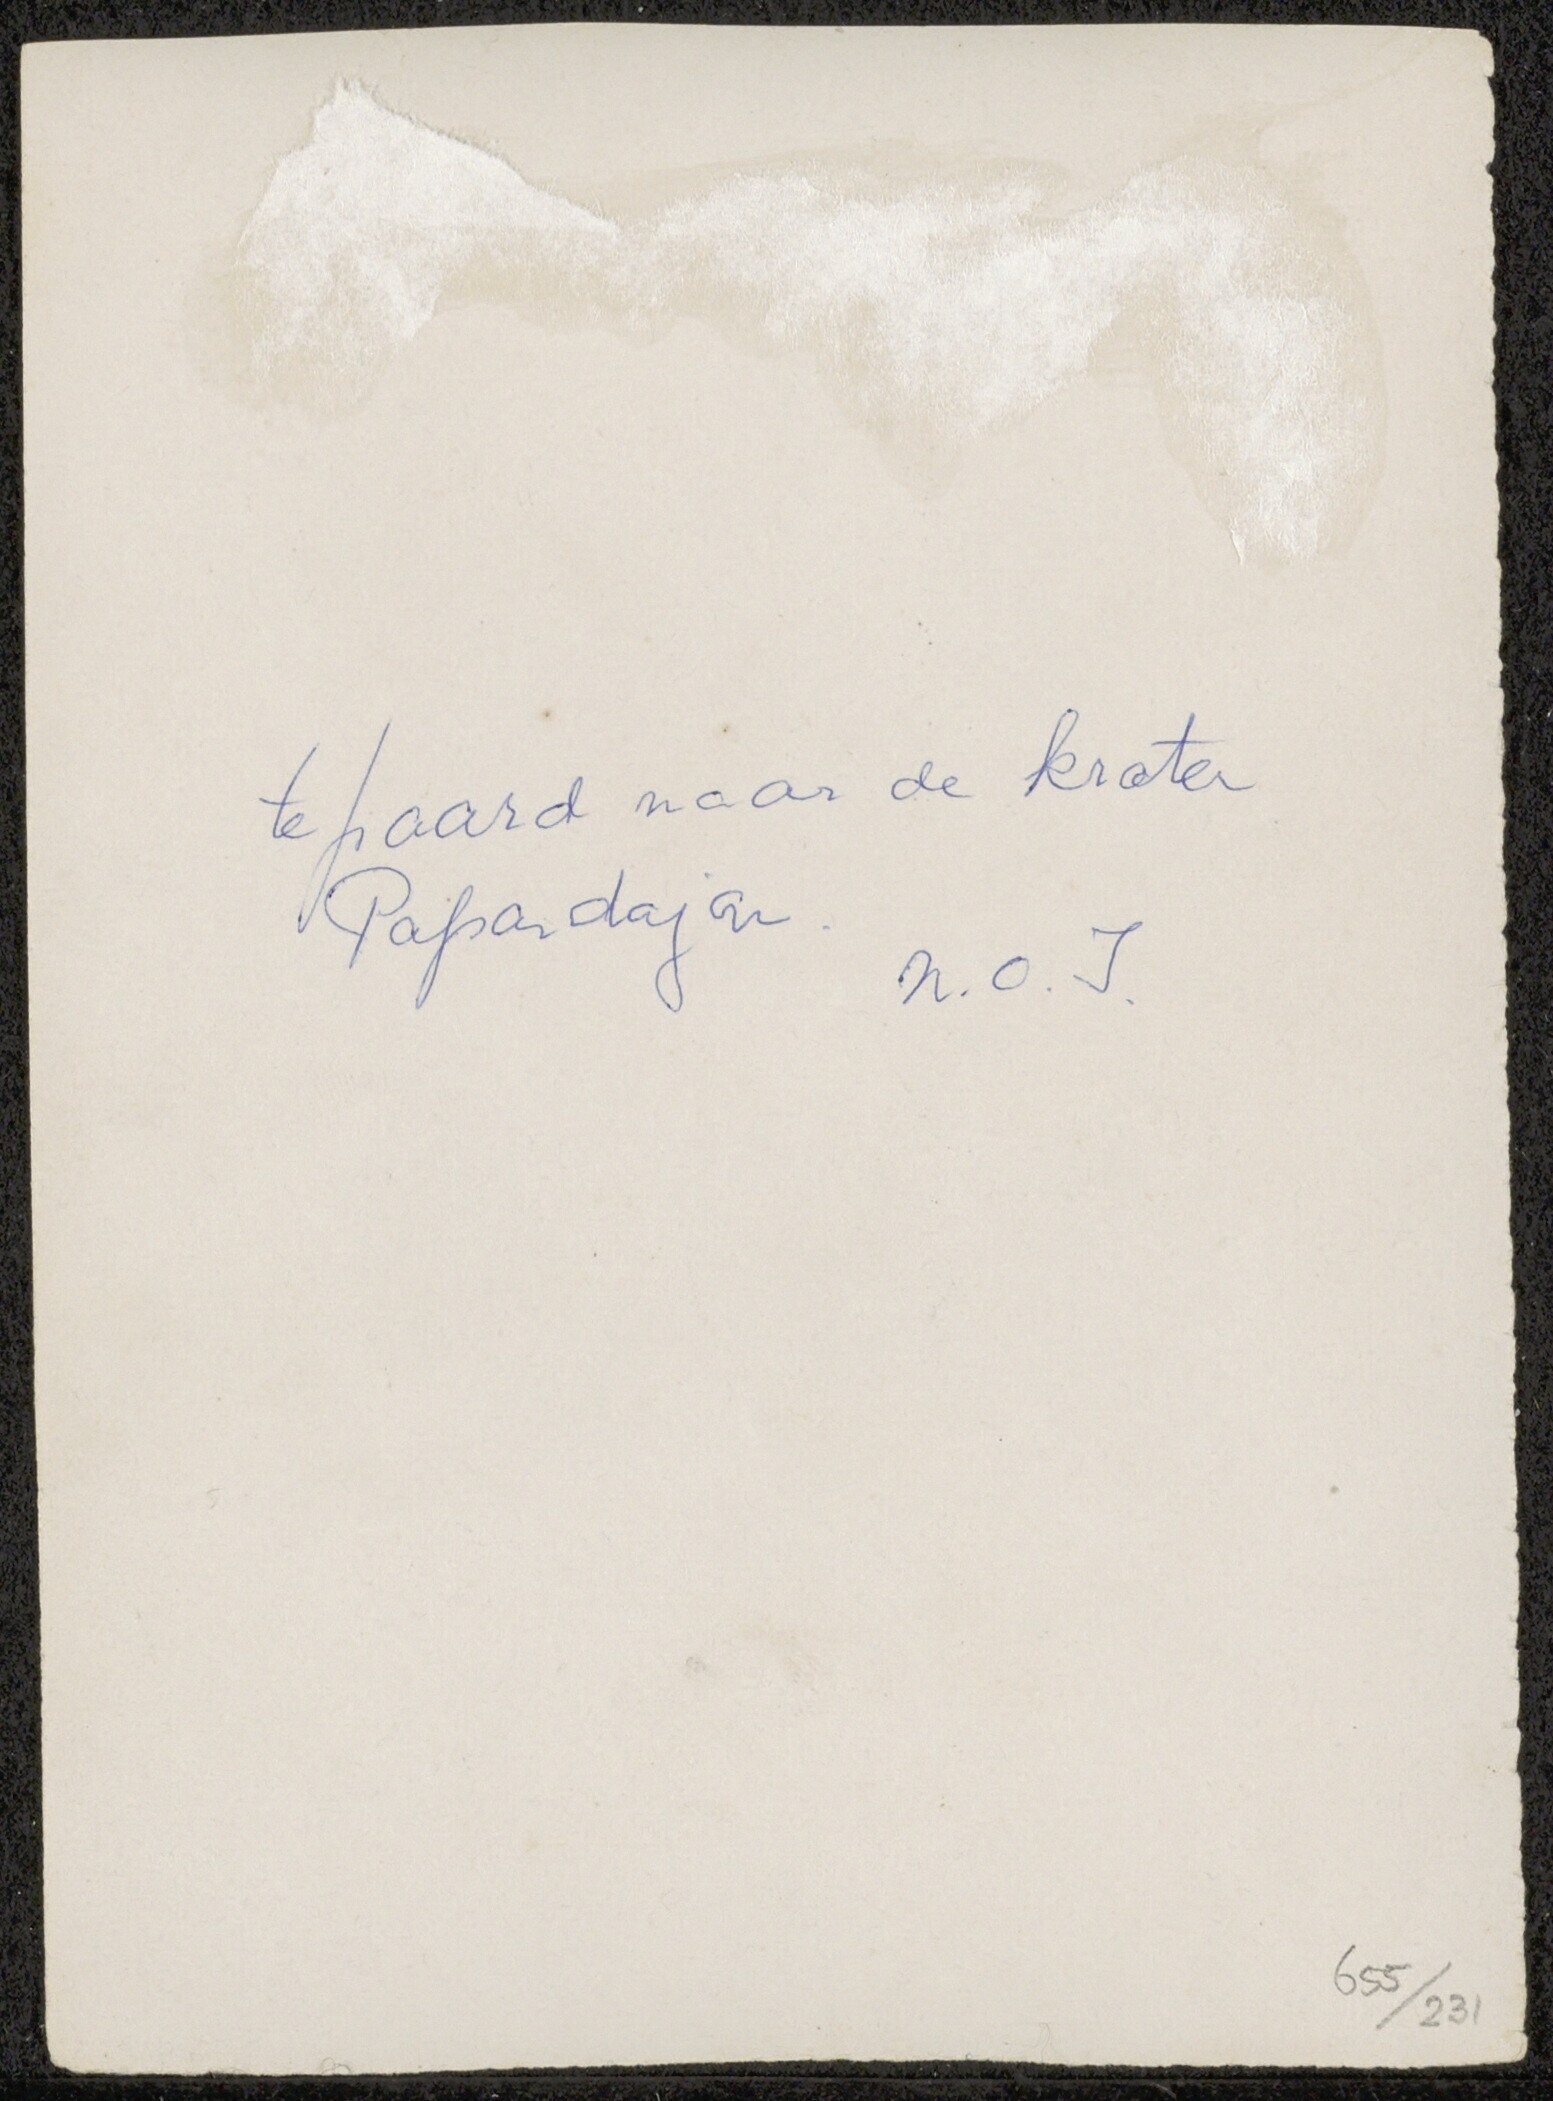 te paard naar de krater
Papandajan.
N.O.I.
655/231